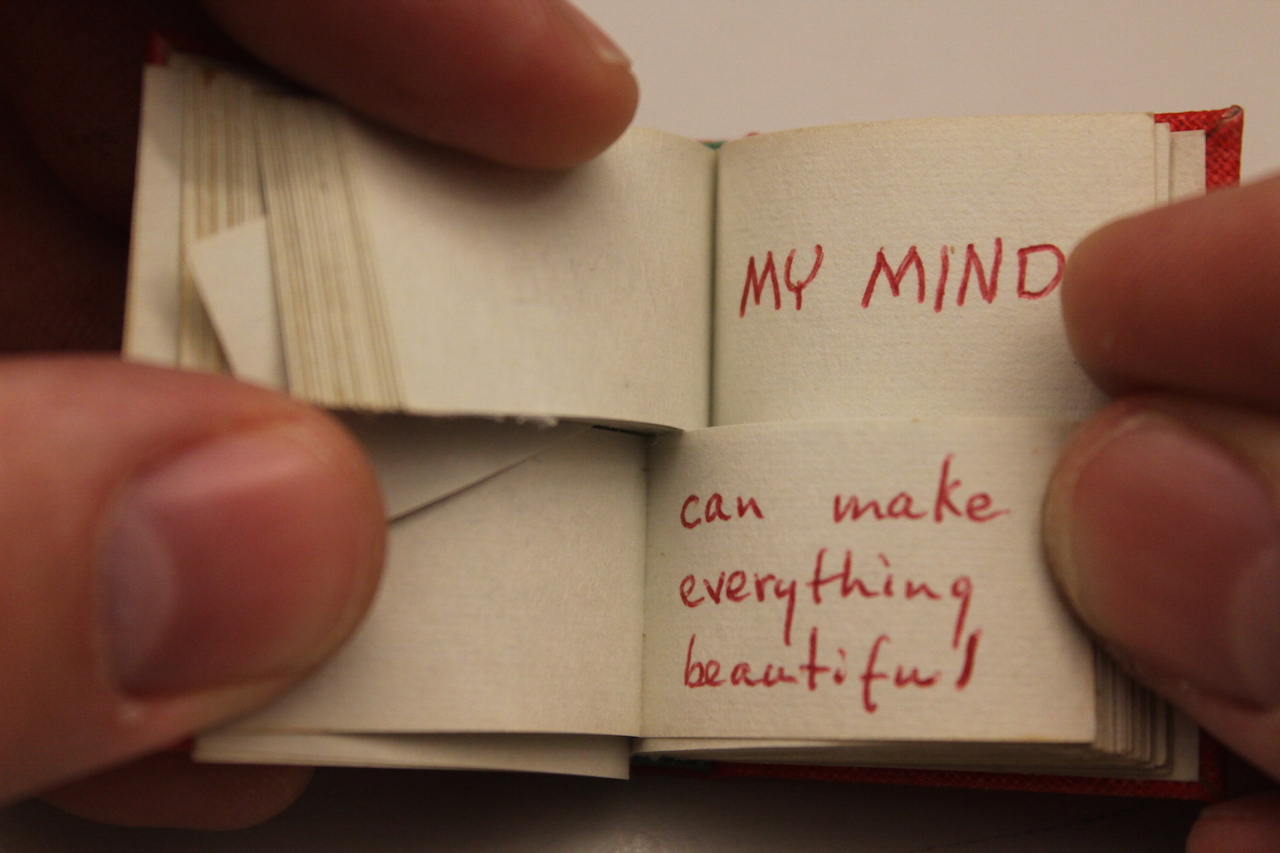 MY MIND
can make
everything
beautiful